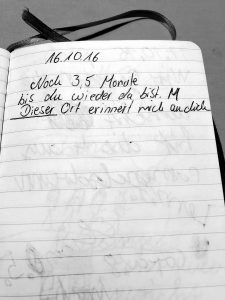 16.10.16
Noch 3,5 Monate
bis du wieder da bist. M
Dieser Ort erinnert mich an dich